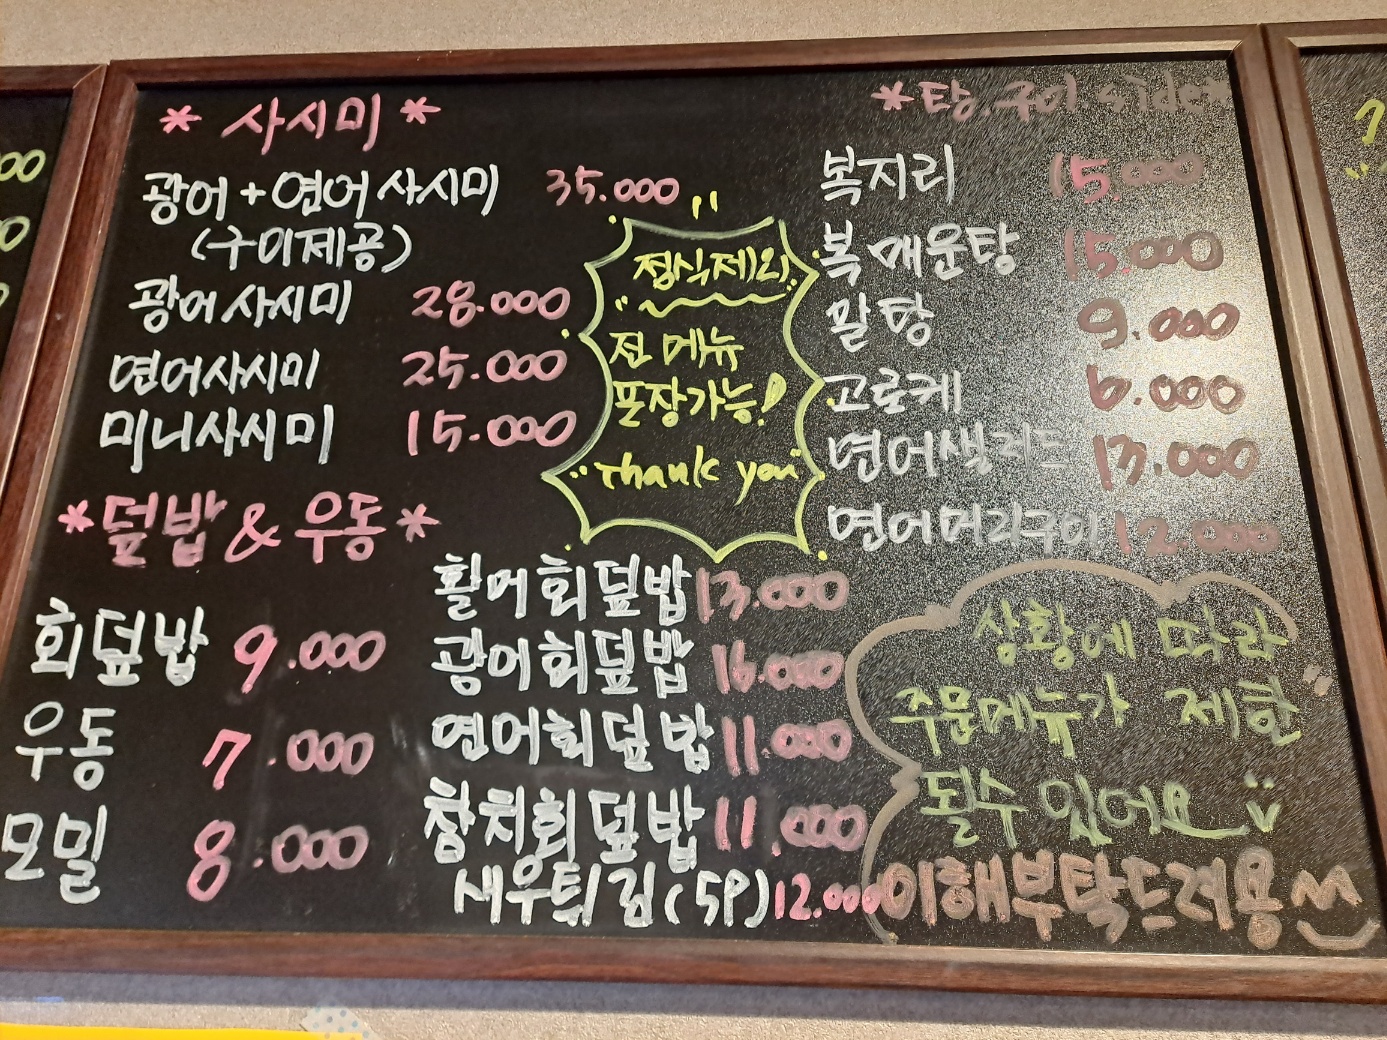 * 사시미 *
광어+연어 사시미 35.000
(구이제공)
광어사시미 28.000
연어사시미 25.000
미니사시미 15.000
정식제외
전 메뉴
포장가능!
Thank you
*탕.구이.side*
복지리 15.000
복매운탕 15.000
알탕 9.000
고로케 6.000
연어샐러드 13.000
연어머리구이 12.000
*덮밥 & 우동*
회덮밥 9.000
우동 7.000
모밀 8.000
활어회덮밥 13.000
광어회덮밥 16.000
연어회덮밥 11.000
참치회덮밥 11.000
새우튀김(5P) 12.000
상황에 따라
주문메뉴가 제한
될수 있어요
이해부탁드려용